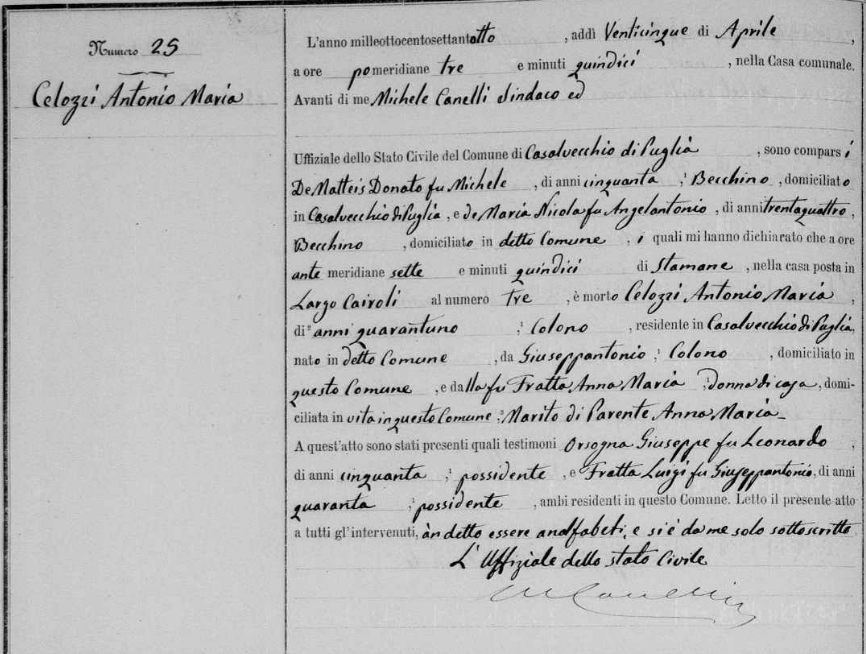 Numero 25
Celozzi Antonio Maria
L'anno milleottocentosettantotto, addì Venticinque di Aprile,
a ore pomeridiane tre e minuti quindici, nella Casa comunale.
Avanti di me Michele Canelli Sindaco ed
Uffiziale dello Stato Civile del Comune di Casalvecchio di Puglia, sono comparsi
De Matteis Donato fu Michele, di anni cinquanta, Becchino, domiciliato
in Casalvecchio di Puglia, e de Maria Nicola fu Angelantonio, di anni trentaquattro,
Becchino, domiciliato in detto Comune, i quali mi hanno dichiarato che a ore
antemeridiane sette e minuti quindici di stamane, nella casa posta in
Largo Cairoli al numero tre, è morto Celozzi Antonio Maria,
di anni quarantuno, Colono, residente in Casalvecchio di Puglia,
nato in detto Comune, da Giuseppantonio, Colono, domiciliato in
questo Comune, e dalla fu Fratta Anna Maria, donna di casa, domi-
ciliata in vita in questo Comune, Marito di Parente Anna Maria_
A quest'atto sono stati presenti quali testimoni Orsogna Giuseppe fu Leonardo,
di anni cinquanta, possidente, e Fratta Luigi fu Giuseppantonio, di anni
quaranta, possidente, ambi residenti in questo Comune. Letto il presente atto
a tutti gl'intervenuti, àn detto essere analfabeti, e si è da me solo sottoscritto
L'Uffiziale dello stato Civile
M Canelli